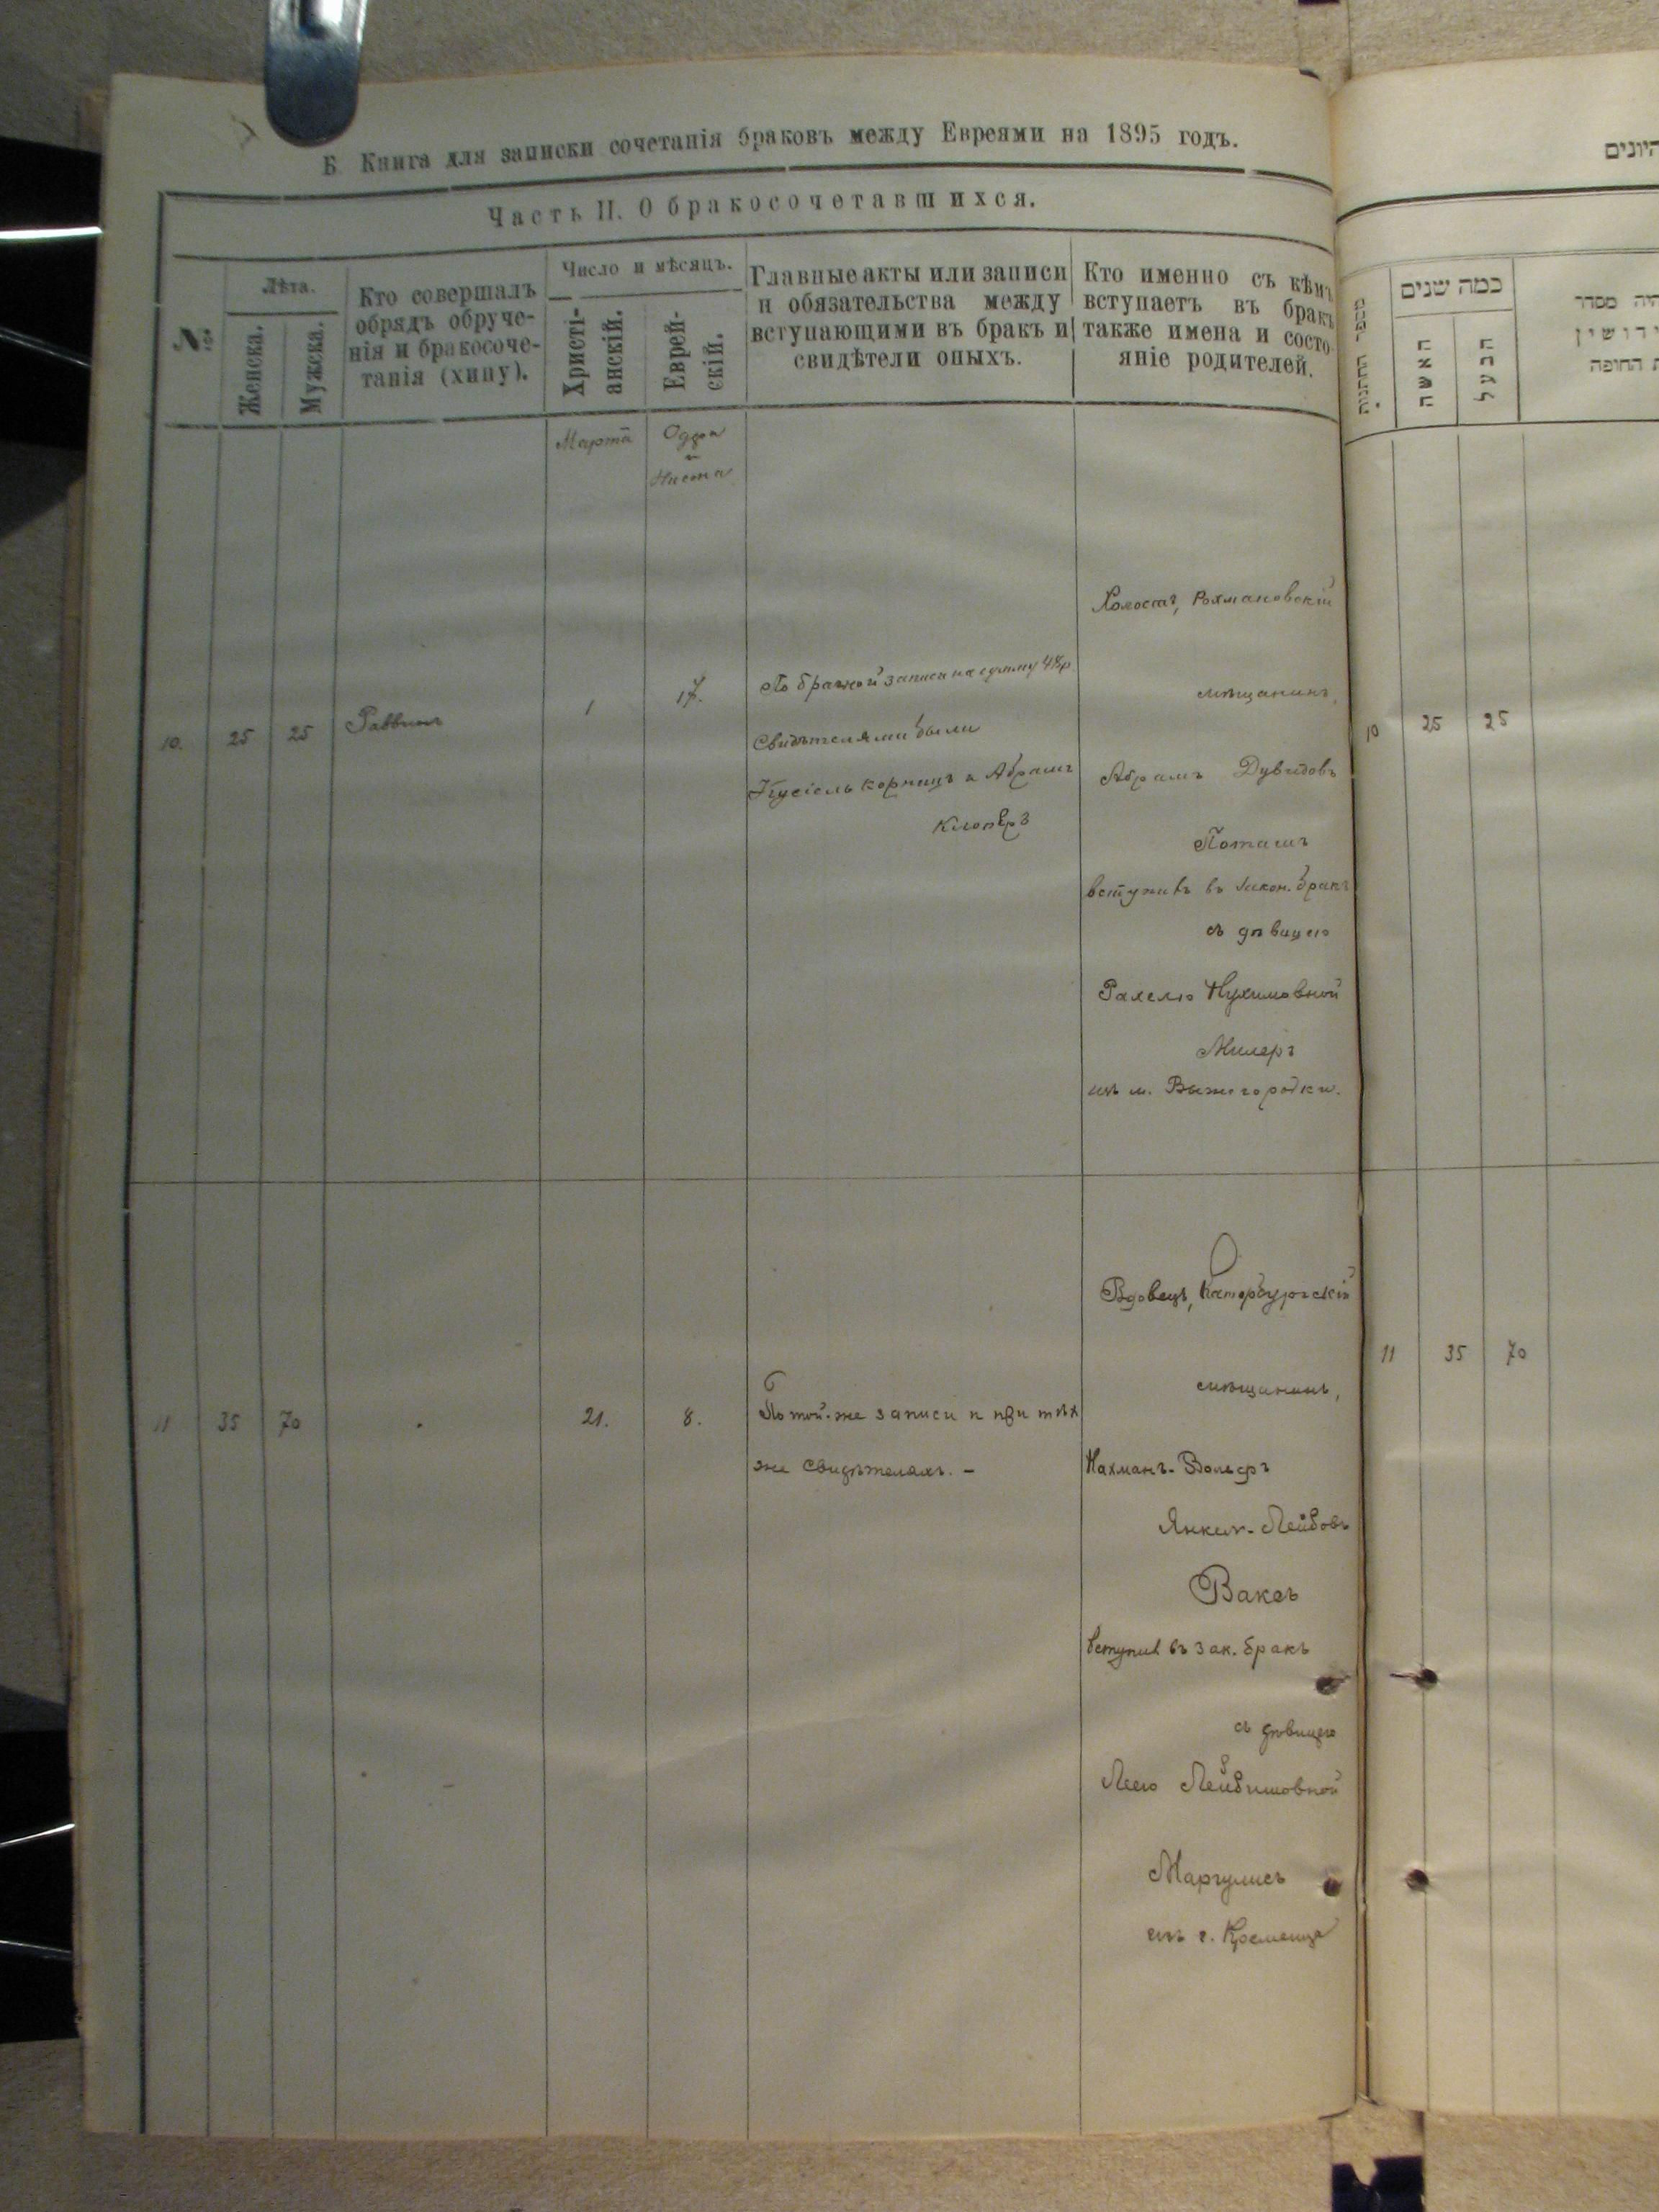 Б. Книга для записки сочетанія браковъ между Евреями на 1895 годъ.
Часть II. О бракосочетавшихся.
№
Лѣта.
Женска.
Мужска.
Кто совершалъ
обрядъ обруче-
нія и бракосоче-
танія (хипу).
Число и мѣсяцъ.
Христі-
анскій.
Еврей-
скій.
Главные акты или записи
и обязательства между
вступающими въ бракъ и
свидѣтели оныхъ.
Кто именно съ кѣмъ
вступаетъ въ бракъ
также имена и состо-
яніе родителей.
Марта
Одра
и
10.
25
25
Раввинъ
1
17.
По брачной записи на сумму 48р
Свидѣтелями были
Кусіель Корницъ и Абрамъ
Холостъ, Рохмановскій
мѣщанинъ,
Абрамъ Дувидовъ
Поташъ
вступивъ въ закон. бракъ
съ дѣвицею
Рахелю Нухимовной
Милеръ
изъ м. Вышегородки.
11
35
70
21.
8.
По той-же записи и при тѣхъ
же свидѣтеляхъ. -
Вдовецъ, Катербургскій
мѣщанинъ,
Нахманъ-Вольфъ
Янкел-Лейбовъ
Ваксъ
вступил въ зак. бракъ
съ дѣвицею
Леею Лейбишовной
Маргулисъ
изъ г. Кременца
היונים
מספר החתנות
כמה שנים
האשה
הבעל
היה מסדר
ת החופה
10
25
25
11
35
70